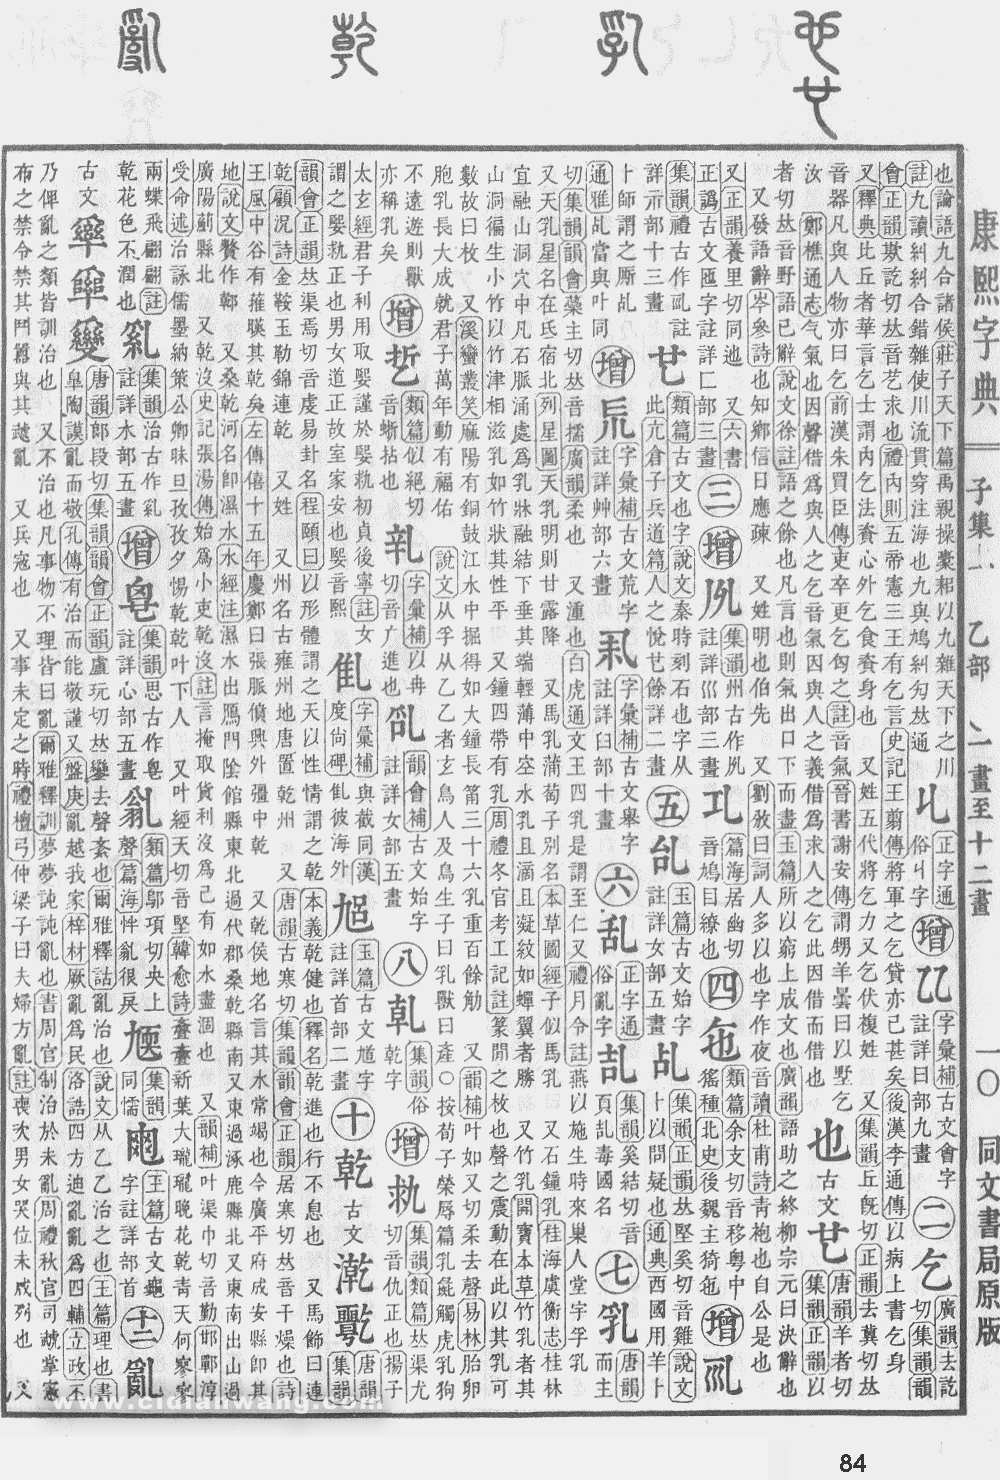 康熙字典 子集上 乙部 一畫至十二畫 一〇 同文書局原版
也論語九合諸侯莊子天下篇禹親操橐耜以九雜天下之川
註九讀糾糾合錯雜使川流貫穿注海也九與鳩糾勼𠀤通
正字通俗丩字 增 字彙補古文會字註詳曰部九畫 二 乞 廣韻去訖切集韻
會正韻欺訖切𠀤音艺求也禮內則五帝憲三王有乞言史記王翦傳將軍之乞貸亦已甚矣後漢李通傳以病上書乞身
又釋典比丘者華言乞士謂內乞法資心外乞食資身也 又姓五代將乞力又乞伏複姓 又集韻丘旣切正韻去冀切𠀤
音器凡與人物亦曰乞前漢朱買臣傳吏卒更乞匄之註音氣晉書謝安傳謂甥羊曇曰以墅乞
汝 鄭樵通志气氣也因聲借爲與人之乞音氣因與人之義借爲求人之乞此因借而借也
也 古文 𠃟 唐韻羊者切集韻正韻以
者切𠀤音野語已辭說文徐註語之餘也凡言也則氣出口下而盡玉篇所以窮上成文也廣韻語助之終柳宗元曰決辭也
又發語辭岑參詩也知鄉信日應疎 又姓明也伯先 又劉攽曰詞人多以也字作夜音讀杜甫詩靑袍也自公是也
又正韻養里切同迆 又六書
正譌古文匜字註詳匚部三畫
三 增 集韻州古作𠃕註詳巛部三畫
篇海居幽切音鳩曰繚也
四 㐌 類篇余支切音移粤中猺種北史後魏主猗㐌
增 𠃨
集韻禮古作𠃨註詳示部十三畫
𠃟 類篇古文也字說文秦時刻石也字从此亢倉子兵道篇人之悅𠃟餘詳二畫
五 乨 玉篇古文始字註詳女部五畫
乩 集韻正韻𠀤堅奚切音雞說文卜以問疑也通典西國用羊卜
卜師謂之厮乩
通雅乩當與叶同
增 字彙補古文荒字註詳艸部六畫
字彙補古文舉字註詳臼部十畫
六 乱 正字通俗亂字
乤 集韻奚結切音頁乱毒國名
七 乳 唐韻而主
切集韻韻會蘂主切𠀤音擩廣韻柔也 又湩也白虎通文王四乳是謂至仁又禮月令註燕以施生時來巢人堂宇孚乳
又天乳星名在氐宿北列星圖天乳明則甘露降 又馬乳蒲萄子別名本草圖經子似馬乳 又石鐘乳桂海虞衡志桂林
宜融山洞穴中凡石脈涌處爲乳牀融結下垂其端輕薄中空水乳且滴且凝紋如蟬翼者勝 又竹乳開寶本草竹乳者其
山洞徧生小竹以竹津相滋乳如竹狀其性平 又鐘四帶有乳周禮冬官考工記註篆閒之枚也聲之震動在此以其乳可
數故曰枚 又溪蠻叢笑麻陽有銅鼓江水中掘得如大鐘長筩三十六乳重百餘觔 又韻補叶如又切柔去聲易林胎卵
胞乳長大成就君子萬年動有福佑 說文从孚从乙乙者玄鳥人及鳥生子曰乳獸曰產〇按荀子榮辱篇乳彘觸虎乳狗
不遠遊則獸
亦稱乳矣
增 乴 類篇似絕切音蜥拈也
字彙補以冉切音广進也
韻會補古文始字註詳女部五畫
八 乹 集韻俗乾字
增 㐜 集韻類篇𠀤渠尤切音仇正也揚子
太玄經君子利用取嬰謹於嬰㐜初貞後寧註女
謂之嬰㐜正也男女道正故室家安也嬰音熙
字彙補與截同漢度尚碑㐖彼海外
玉篇古文馗字註詳首部二畫
十 乾 古文 唐韻
集韻
韻會正韻𠀤渠焉切音虔易卦名程頤曰以形體謂之天以性情謂之乾本義乾健也釋名乾進也行不息也 又馬飾曰連
乾顧況詩金鞍玉勒錦連乾 又姓 又州名古雍州地唐置乾州 又唐韻古寒切集韻韻會正韻居寒切𠀤音干燥也詩
王風中谷有蓷暵其乾矣左傳僖十五年慶鄭曰張脈僨興外彊中乾 又乾侯地名言其水常竭也今廣平府成安縣卽其
地說文贅作鄿 又桑乾河名卽濕水水經注濕水出鴈門陰館縣東北過代郡桑乾縣南又東過涿鹿縣北又東南出山過
廣陽薊縣北 又乾沒史記張湯傳始爲小吏乾沒註言掩取貨利沒爲己有如水盡涸也 又韻補叶渠巾切音勤邯鄲淳
受命述治詠儒墨納策公卿昧旦孜孜夕惕乾乾叶下人 又叶經天切音堅韓愈詩畫畫新葉大瓏瓏晚花乾靑天何寥寥
兩蝶飛翩翩註
乾花色不潤也
集韻治古作乿註詳水部五畫
增 集韻思古作㥯註詳心部五畫
類篇鄔項切央上聲篇海忤亂很戾
集韻同懦
玉篇古文龜字註詳部首
十二 亂
古文 唐韻郎段切集韻韻會正韻盧玩切𠀤鑾去聲紊也爾雅釋詁亂治也說文从乙乙治之也玉篇理也書
皐陶謨亂而敬孔傳有治而能敬謹又盤庚亂越我家梓材厥亂爲民洛誥四方迪亂亂爲四輔立政不
乃俾亂之類皆訓治也 又不治也凡事物不理皆曰亂爾雅釋訓夢夢訰訰亂也書周官制治於未亂周禮秋官司虣掌憲
市之禁令禁其鬥囂與其虣亂 又兵寇也 又事未定之時禮檀弓仲梁子曰夫婦方亂註喪次男女哭位未成列也 又
www.cidianwang.com
84